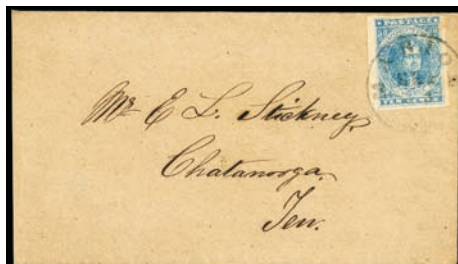 POSTAGE
TEN CENTS
Mr. E L. Stickney
Chatanooga,
Ten.